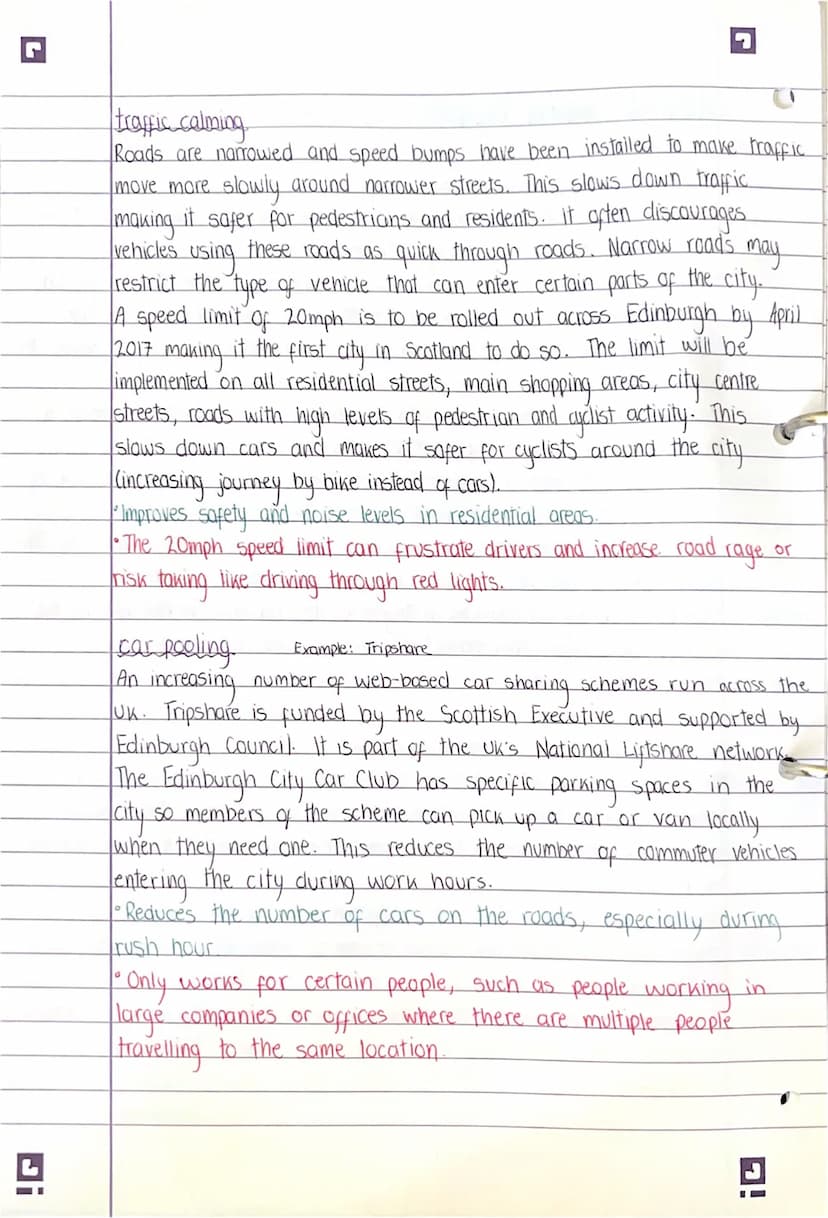 traffic calming
Roads are narrowed and speed bumps have been installed to make traffic
move more slowly around narrower streets. This slows down traffic
making it safer for pedestrians and residents. it often discourages
vehicles using these roads as quick through roads. Narrow roads may
restrict the type of vehicle that can enter certain parts of the city.
A speed limit of 20mph is to be rolled out across Edinburgh by April
2017 making it the first city in Scotland to do so. The limit will be
implemented on all residential streets, main shopping areas, city centre
streets, roads with high levels of pedestrian and cyclist activity. This
slows down cars and makes it safer for cyclists around the city
(increasing journey by bike instead of cars).
• Improves safety and noise levels in residential areas.
• The 20mph speed limit can frustrate drivers and increase road rage or
risk taking like driving through red lights.
car pooling Example: Tripshare
An increasing number of web-based car sharing schemes run across the
UK. Tripshare is funded by the Scottish Executive and supported by
Edinburgh Council. It is part of the UK's National Liftshare network.
The Edinburgh City Car Club has specific parking spaces in the
city so members of the scheme can pick up a car or van locally
when they need one. This reduces the number of commuter vehicles
entering the city during work hours.
• Reduces the number of cars on the roads, especially during
rush hour.
• Only works for certain people, such as people working in
large companies or offices where there are multiple people
travelling to the same location.